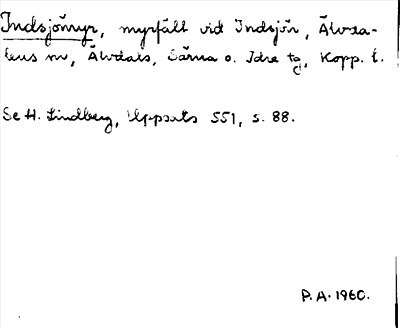 Indsjömyr, myrfält vid Indsjön, Älvda-
lens nv, Älvdals, Särna o. Idre tg, Kopp. l.
Se H. Lindberg, Uppsats 551, s. 88.
P.A. 1960.